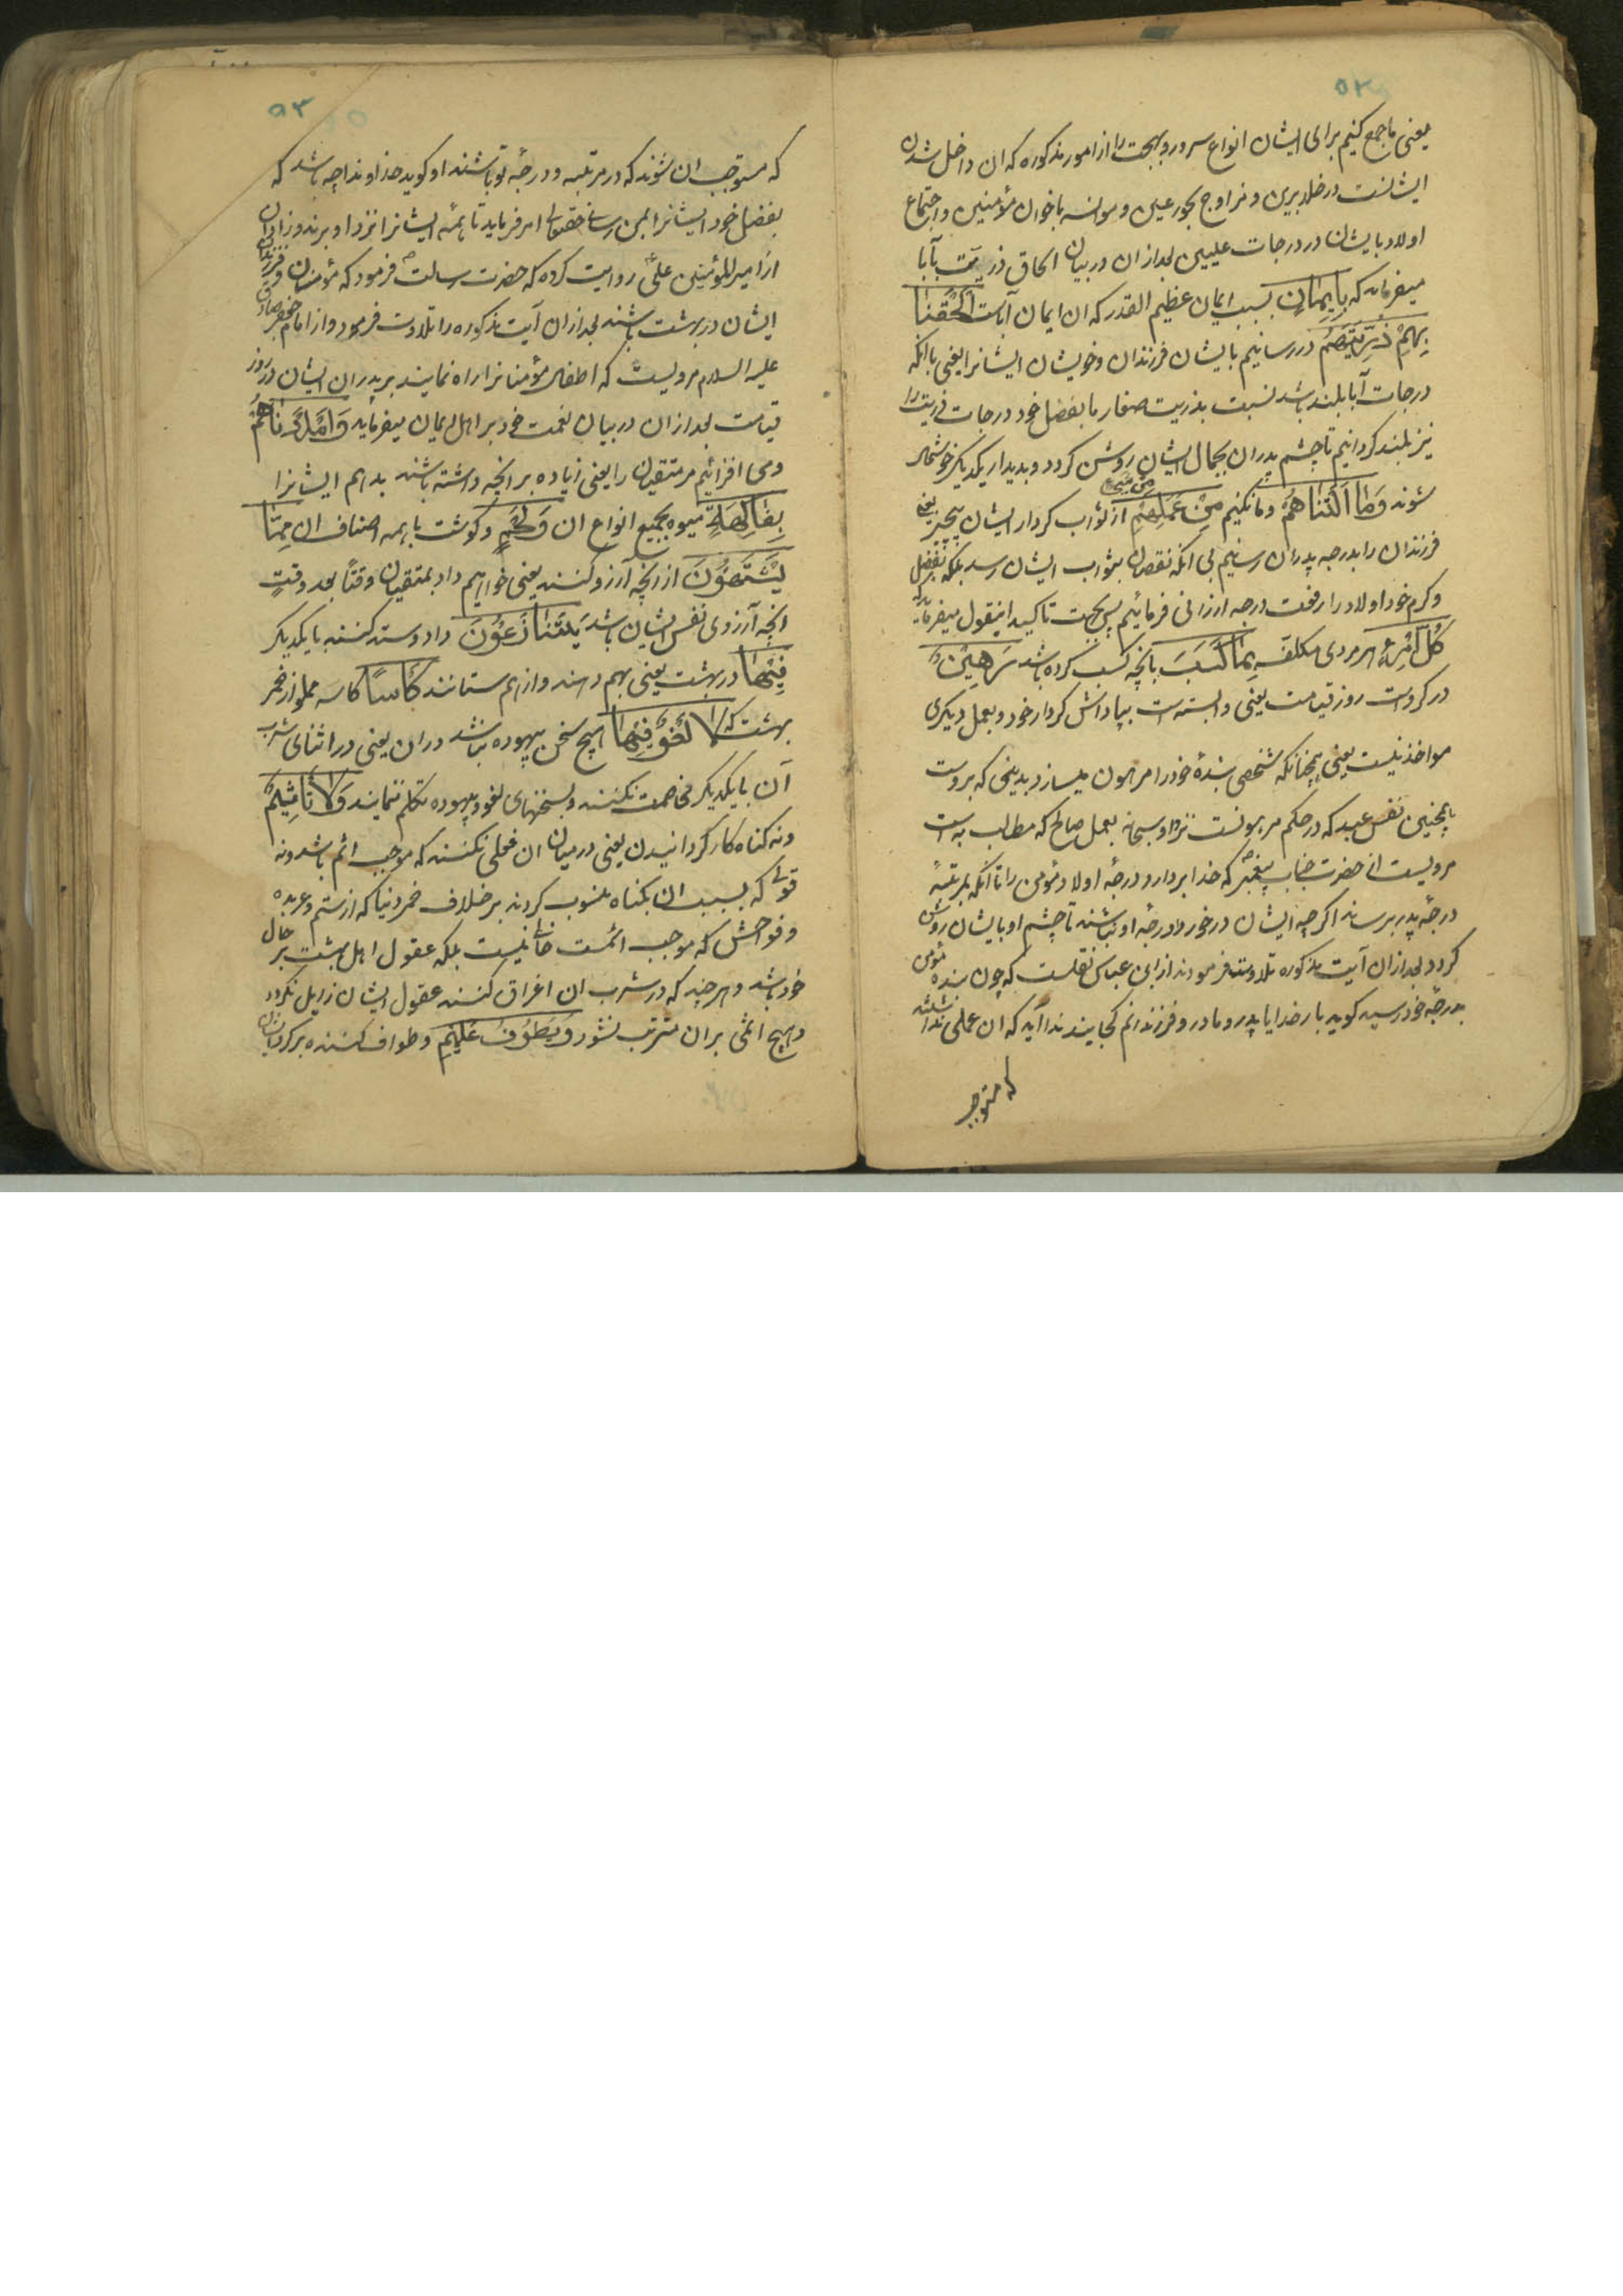 ۵۲
یعنی ما جمع کنیم برای ایشان انواع سرور و بهجت را از امور مذکوره که ان داخل شدن
ایشانست در خلد برین و تزاوج بحور عین و موانسه باخوان مؤمنین و اجتماع
اولاد بایشان در درجات علیین بعد از ان در بیان الحاق ذریت بآبا
میفرماید که بِاِیمٰانٍ بسبب ایمان عظیم القدر که ان ایمان آباست اَلْحَقْنٰا
بِهِمْ ذُرِّیَّتَهُمْ در رسانیم بایشان فرزندان و خویشان ایشانرا یعنی باانکه
درجات آبا بلند باشد نسبت بذریت صغار ما بفضل خود درجات ذریت را
نیز بلند کردانیم تا چشم پدران بجمال ایشان روشن کردد و بدیدار یکدیکر خوشحال
شوند وَمٰا اَلَتْنٰاهُمْ و ما نکنیم مِنْ عَمَلِهِمْ از ثواب کردار ایشان مِنْ شَیْءٍ هیچ چیز یعنی
فرزندان را بدرجه پدران رسانیم بی انکه نقصان بثواب ایشان رسد بلکه بفضل
و کرم خود اولاد را رفعت درجه ارزانی فرمائیم پس بجهت تاکید اینقول میفرماید که
کُلُّ امْرِئٍ هر مردی مکلف بِمٰا کَسَبَ بانچه کسب کرده باشد رَهِینٌ
در کروست روز قیامت یعنی وابسته است بپاداش کردار خود و بعمل دیکری
مواخذ نیست یعنی همچنانکه شخصی بندهٔ خود را مرهون میسازد بدینی که بروست
همچنین نفس عبد که در حکم مرهونست نزد او سبحانه بعمل صالح که مطالب به است
مرویست از حضرت جناب پیغمبر که خدا بردارد درجهٔ اولاد مؤمن را تا انکه بمرتبهٔ
درجهٔ پدر برساند اکرچه ایشان در خور درجهٔ او نباشند تا چشم او بایشان روشن
کردد بعد از ان آیت مذکوره تلاوت فرمودند از ابن عباس نقلست که چون بندهٔ مؤمن
بدرجهٔ خود رسید کوید بار خدایا پدر و مادر و فرزندانم کجایند ندا آید که ان عملی نداشتند
که مستوجب
۵۳
که مستوجب ان شوند که در مرتبه و درجهٔ تو باشند او کوید خداوندا چه باشد که
بفضل خود ایشانرا بمن رسانی حقتعالی امر فرماید تا همهٔ ایشانرا نزد او برند و زاذان
از امیرالمؤمنین علی روایت کرده که حضرت رسالت فرمود که مؤمنان و فرزندان
ایشان در بهشت باشند بعد از ان آیت مذکوره را تلاوت فرمود و از امام جعفر صادق
علیه السلام مرویست که اطفال مؤمنانرا راه نمایند بر پدران ایشان در روز
قیامت بعد از ان در بیان نعمت خود بر اهل ایمان میفرماید وَاَمْدَدْنٰاهُمْ
و می افزائیم مر متقیان را یعنی زیاده بر انچه داشته باشند بدهم ایشانرا
بِفٰاکِهَةٍ میوه بجمیع انواع ان وَلَحْمٍ و کوشت با همه اصناف ان مِمّٰا
یَشْتَهُونَ از انچه آرزو کنند یعنی خواهیم داد بمتقیان وقتًا بعد وقتٍ
انچه آرزوی نفس ایشان باشد یَتَنٰازَعُونَ داد و ستد کنند با یکدیکر
فِیهٰا در بهشت یعنی بهم دهند و از هم ستانند کَأْسًا کاسه مملو از خمر
بهشت که لٰا لَغْوٌ فِیهٰا هیچ سخن بیهوده نباشد در ان یعنی در اثنای شرب
آن با یکدیکر مخاصمت نکنند و بسخنهای لغو و بیهوده تکلم ننمایند وَلٰا تَأْثِیمٌ
و نه کناه کار کردانیدن یعنی در میان ان فعلی نکنند که موجب اثم باشد و نه
قولی که بسبب ان بکناه منسوب کردند بر خلاف خمر دنیا که از ستم و عربده
و فواحش که موجب اثمست خالی نیست بلکه عقول اهل بهشت بر حال
خود باشد و هرچند که در شرب ان اغراق کنند عقول ایشان زایل نکردد
و هیچ اثمی بران مترتب نشود وَیَطُوفُ عَلَیْهِمْ و طواف کننده بر کرد ایشان